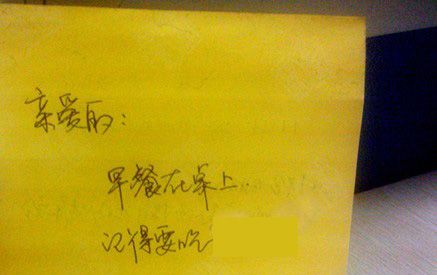 亲爱的：
早餐在桌上
记得要吃